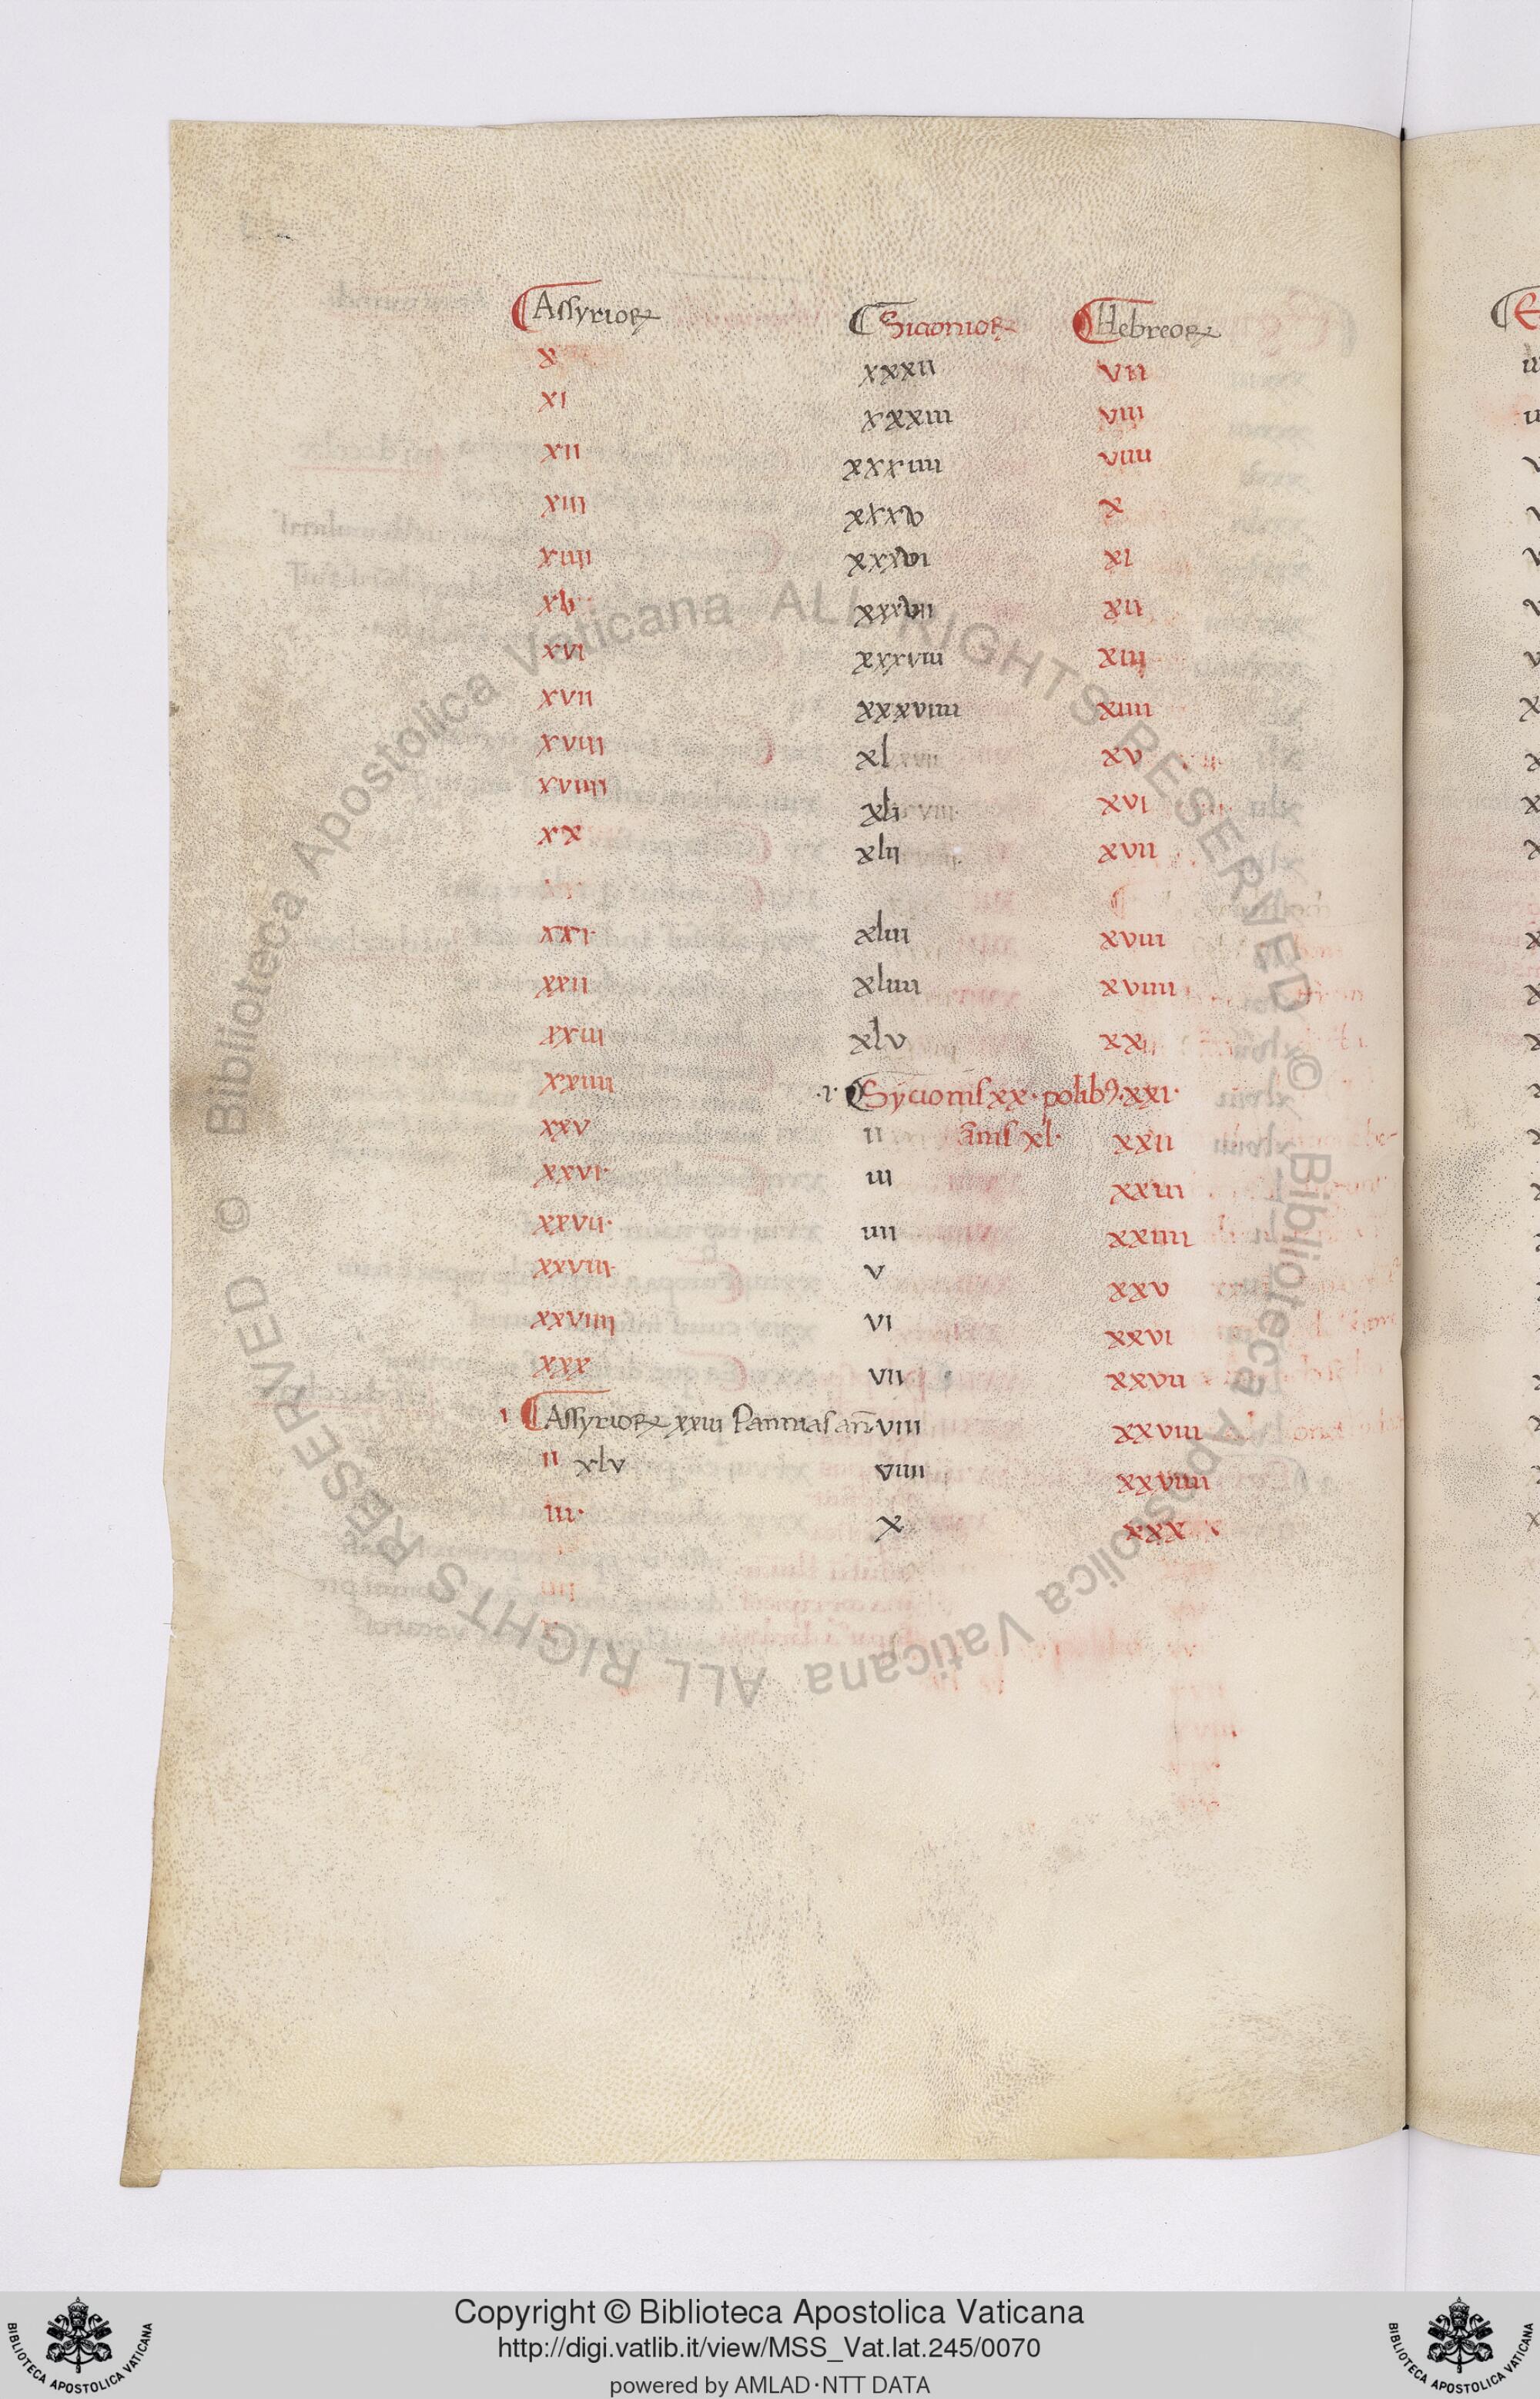 Assyrioꝝ Sicionioꝝ Hebreoꝝ
x xxxii vii
xi xxxiii viii
xii xxxiiii viiii
xiii xxxv x
xiiii xxxvi xi
xv xxxvii xii
xvi xxxviii xiii
xvii xxxviiii xiiii
xviii xl xv
xviiii xli xvi
xx xlii xvii
xxi· xliii xviii
xxii xliiii xviiii
xxiii xlv xx
xxiiii ·i· Sycionis xx· polib⁹· xxi·
xxv ii ānis xl· xxii
xxvi· iii xxiii
xxvii· iiii xxiiii
xxviii· v xxv
xxviiii vi xxvi
xxx vii xxvii
i Assyrioꝝ xxiii Pannias an̄· viii xxviii
ii xlv viiii xxviiii
iii· x xxx
© Biblioteca Apostolica Vaticana ALL RIGHTS RESERVED © Biblioteca Apostolica Vaticana ALL RIGHTS RESERVED
Copyright © Biblioteca Apostolica Vaticana
http://digi.vatlib.it/view/MSS_Vat.lat.245/0070
powered by AMLAD·NTT DATA
BIBLIOTECA APOSTOLICA VATICANA
BIBLIOTECA APOSTOLICA VATICANA